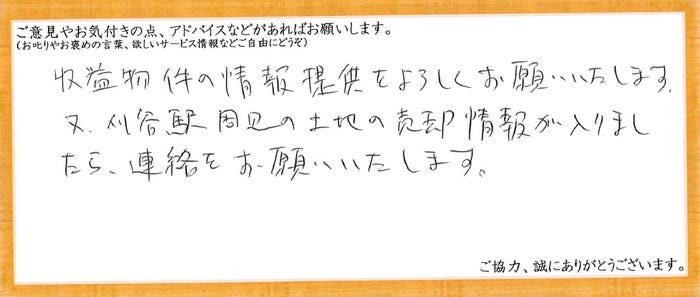 ご意見やお気付きの点、アドバイスなどがあればお願いします。
(お叱りやお褒めの言葉、欲しいサービス情報などご自由にどうぞ)
収益物件の情報提供をよろしくお願いいたします。
又、刈谷駅周辺の土地の売却情報が入りまし
たら、連絡をお願いいたします。
ご協力、誠にありがとうございます。